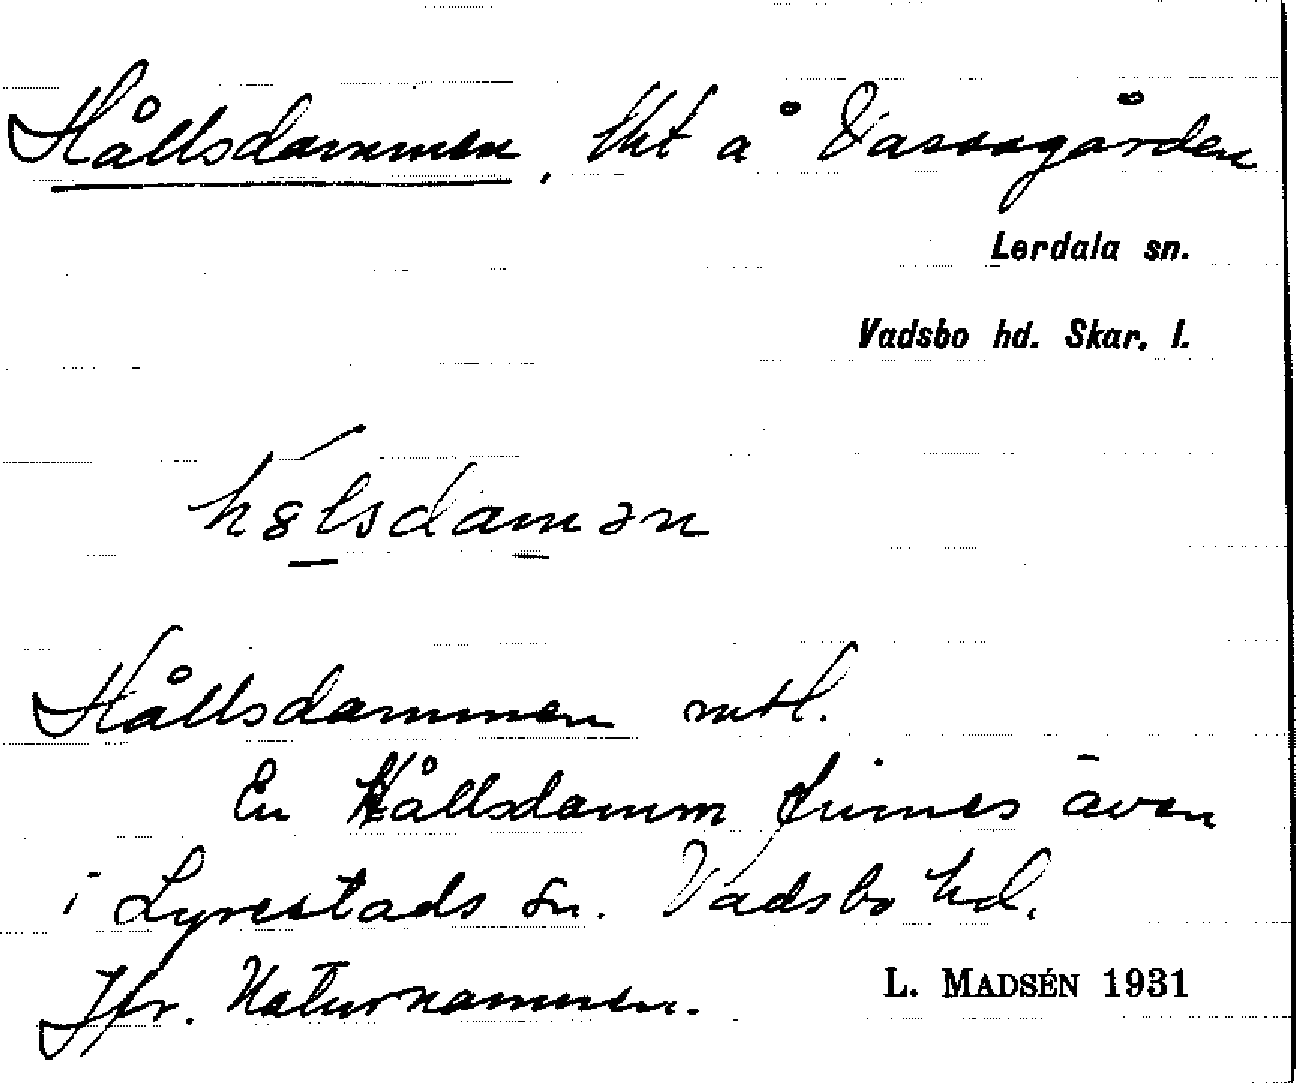 Hållsdammen, tkt å Vassgården
Lerdala sn.
Vadsbo hd. Skar. l.
Hållsdammen mtl.
En Hållsdamm finnes även
i Lyrestads sn. Vadsbo hd.
Jfr. Naturnamnen.
L. MADSÉN 1931